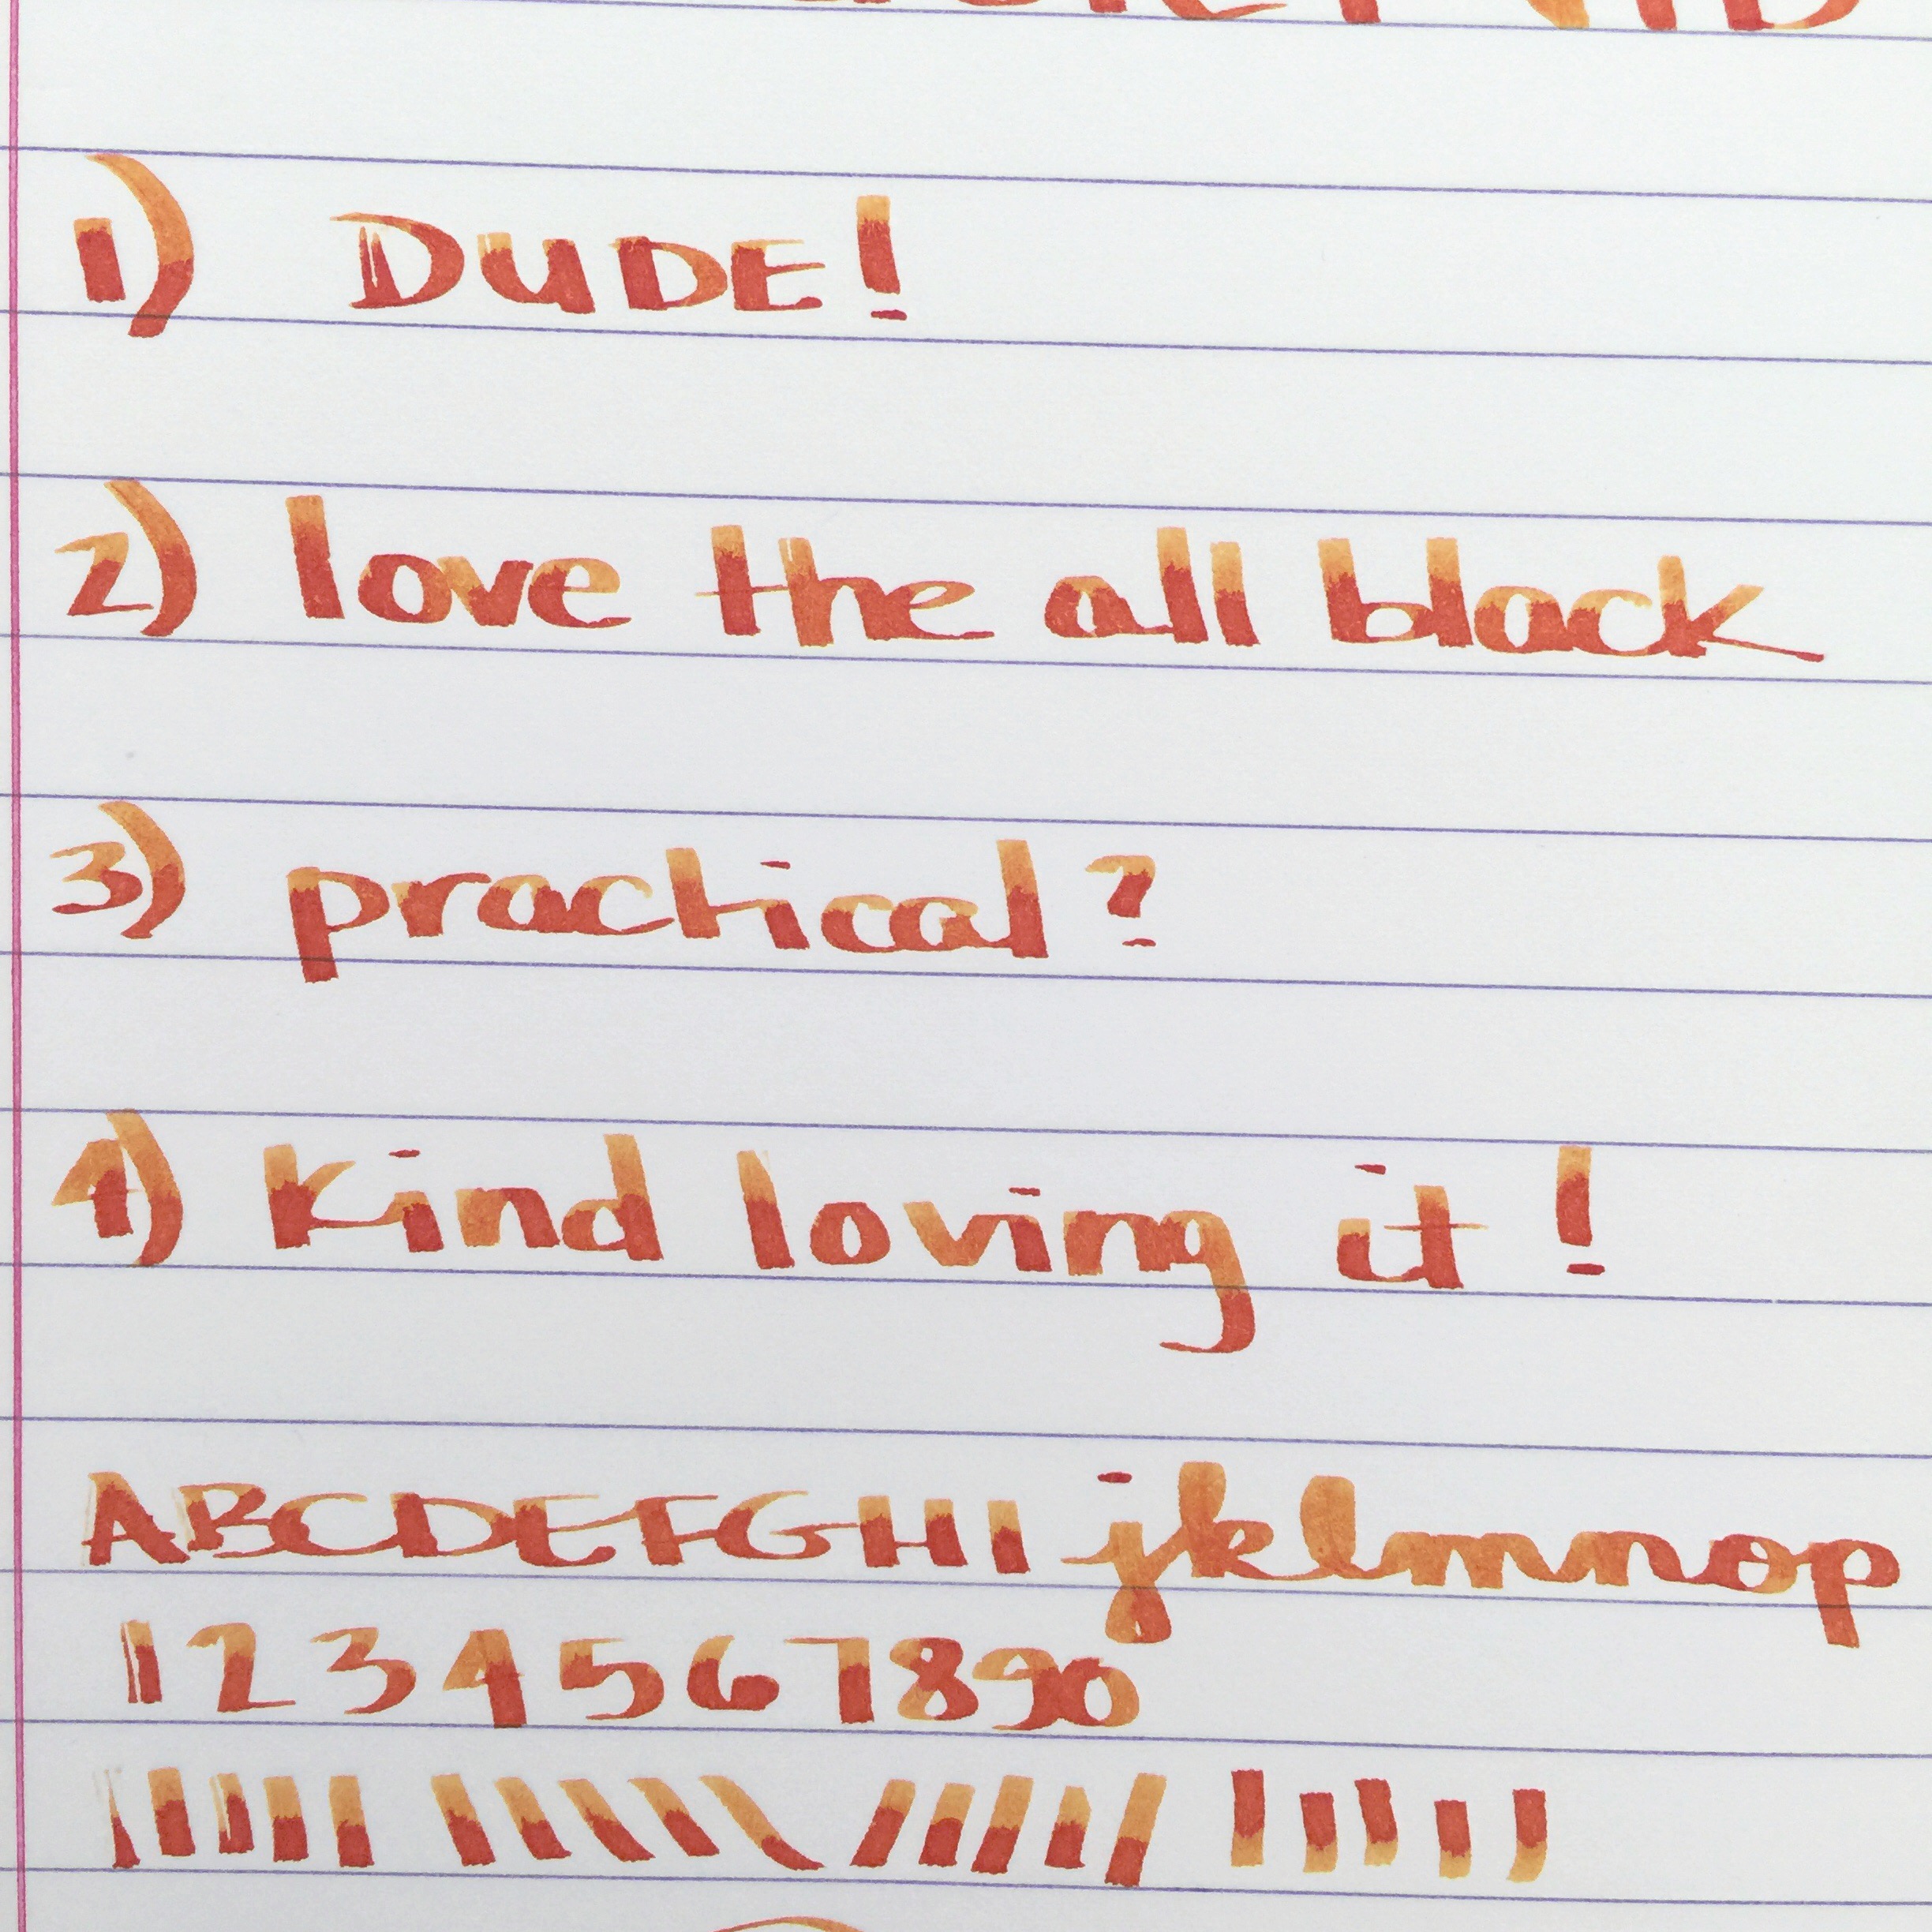 1) DUDE!
2) love the all black
3) practical?
4) Kind loving it!
ABCDEFGHI jklmnop
1234567890